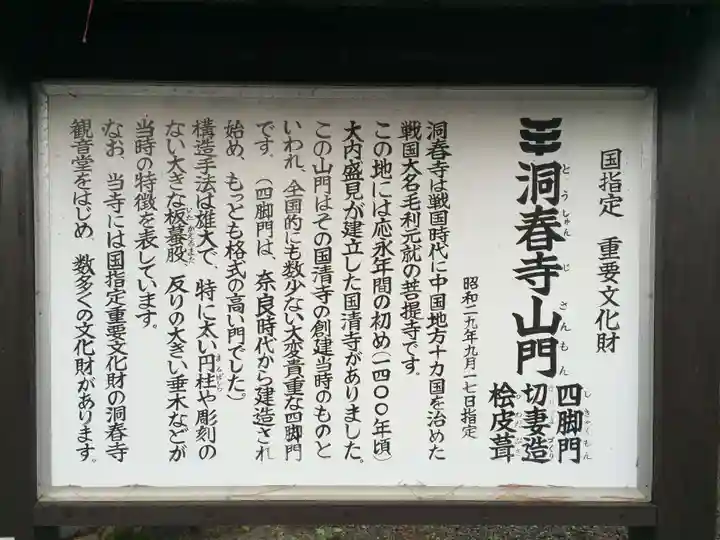 国指定　重要文化財
洞春寺山門
とうしゅんじさんもん
四脚門
しきゃくもん
切妻造
桧皮葺
昭和二九年九月一七日指定
洞春寺は戦国時代に中国地方十カ国を治めた
戦国大名毛利元就の菩提寺です。
この地には応永年間の初め(一四〇〇年頃)
大内盛見が建立した国清寺がありました。
この山門はその国清寺の創建当時のものと
いわれ、全国的にも数少ない大変貴重な四脚門
です。(四脚門は、奈良時代から建造され
始め、もっとも格式の高い門でした。)
構造手法は雄大で、特に太い円柱や彫刻の
まるばしら
ない大きな板蟇股、反りの大きい垂木などが
いたかえるまた
当時の特徴を表しています。
なお、当寺には国指定重要文化財の洞春寺
観音堂をはじめ、数多くの文化財があります。